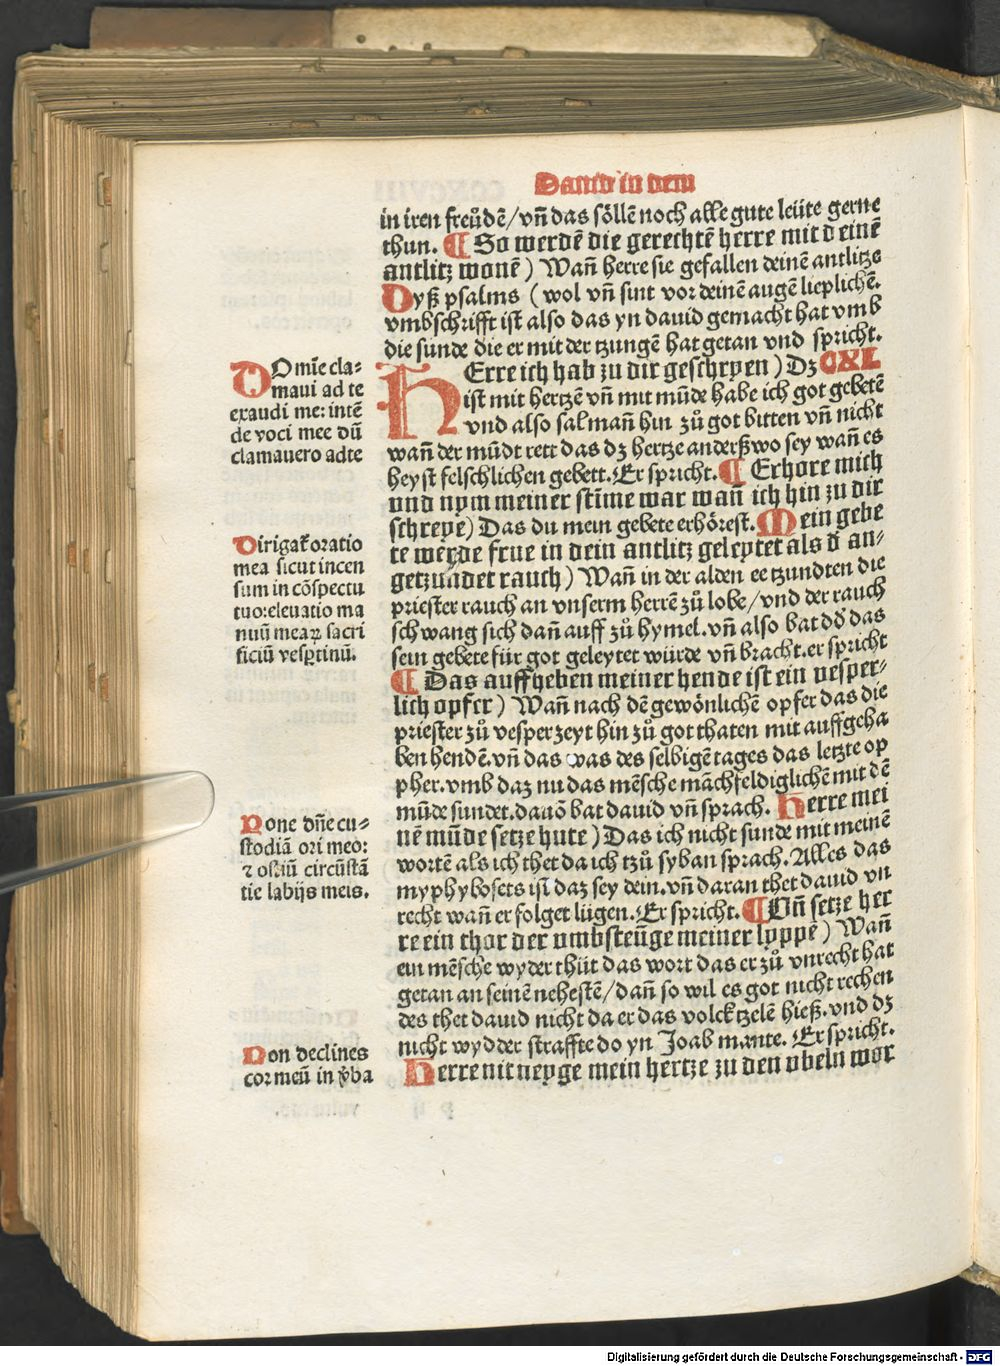 Dauid in dem
in iren freůdē/vn̄ das söllē noch alle gute leüte gerne
thun. ¶ So werdē die gerechtē herre mit deinē
antlitz wonē) Wan̄ herre sie gefallen deinē antlitze
Dyß psalms (wol vn̄ sint vor deinē augē lieplichē.
vmbschrifft ist also das yn dauid gemacht hat vmb
die sunde die er mit der tzungē hat getan vnd spricht.
HErre ich hab zu dir geschryen) Dz CXL
ist mit hertzē vn̄ mit mūde habe ich got gebetē
vnd also sal man̄ hin zů got bitten vn̄ nicht
wan̄ der mūdt rett das dz hertze anderßwo sey wan̄ es
heyst felschlichen gebett. Er spricht. ¶ Erhore mich
vnd nym meiner stīme war wan̄ ich hin zu dir
schreye) Das du mein gebete erhörest. Mein gebe
te werde frue in dein antlitz geleytet als d̄ an-
getzundet rauch) Wan̄ in der alden ee tzundten die
priester rauch an vnserm herrē zů lobe/vnd der rauch
schwang sich dan̄ auff zů hymel. vn̄ also bat dd̄ das
sein gebete für got geleytet würde vn̄ bracht. er spricht
¶ Das auffheben meiner hende ist ein vesper-
lich opfer) Wan̄ nach dē gewönlichē opfer das die
priester zů vesper zeyt hin zů got thaten mit auffgeha
ben hendē. vn̄ das was des selbigē tages das letzte op
pher. vmb daz nu das mēsche māchfeldiglichē mit dē
mūde sundet. dauō bat dauid vn̄ sprach. Herre mei
nē mūde setze hute) Das ich nicht sunde mit meinē
wortē als ich thet da ich tzů syban sprach. Alles das
myphybosets ist daz sey dein. vn̄ daran thet dauid vn
recht wan̄ er folget lügen. Er spricht. ¶ Vn̄ setze her
re ein thor der vmbsteūge meiner lyppē) Wan̄
ein mēsche wyder thüt das wort das er zů vnrecht hat
getan an seinē nehestē/dan̄ so wil es got nicht rechen
des thet dauid nicht da er das volck tzelē hieß. vnd dz
nicht wydder straffte do yn Joab mante. Er spricht.
Herre nit neyge mein hertze zu den vbeln wor
DOmīe cla-
maui ad te
exaudi me: intē
de voci mee dū
clamauero ad te
Dirigat̄ oratio
mea sicut incen
sum in cōspectu
tuo: eleuatio ma
nuū mearꝝ sacri
ficiū vesꝑtinū.
Pone dn̄e cu-
stodiā ori meo:
⁊ ostiū circūstā
tie labijs meis.
Non declines
cor meū in v̄ba
Digitalisierung gefördert durch die Deutsche Forschungsgemeinschaft - DFG